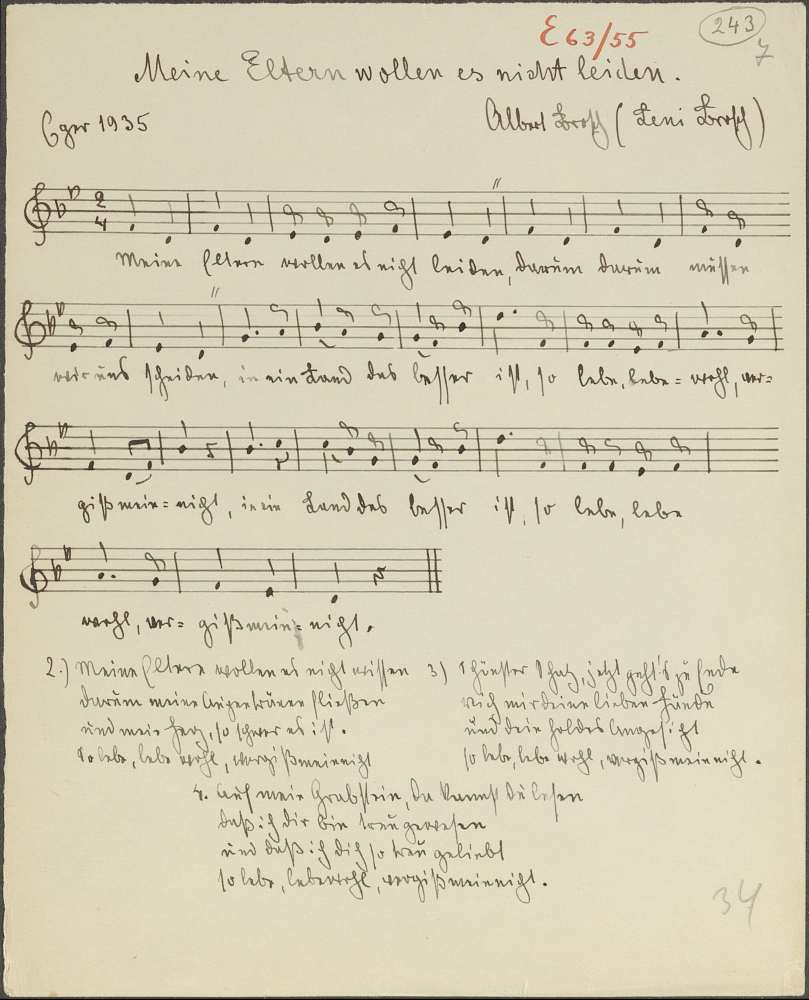 E 63/55
243
7
Meine Eltern wollen es nicht leiden.
Eger 1935
Albert Brosch (Leni Brosch)
2
4
Meine Eltern wollen es nicht leiden, darum darum müssen
wir uns scheiden, in ein Land das besser ist, so lebe, lebe = wohl, ver=
giß mein = nicht, in ein Land das besser ist, so lebe, lebe
wohl, ver= giß mein = nicht.
2.) Meine Eltern wollen es nicht wissen
darum meine Augentränen fließen
und mein Herz, so schwer es ist.
So lebe, lebe wohl, vergißmeinnicht
3) Schönster Schatz, jetzt geht's zu Ende
reich mir deine lieben Hände
und dein holdes Angesicht
so lebe, lebe wohl, vergiß meinnicht.
4. Auf mein Grabstein, da kannst du lesen
daß ich dir bin treu gewesen
und daß ich dich so treu geliebt
so lebe, lebewohl, vergißmeinnicht.
34